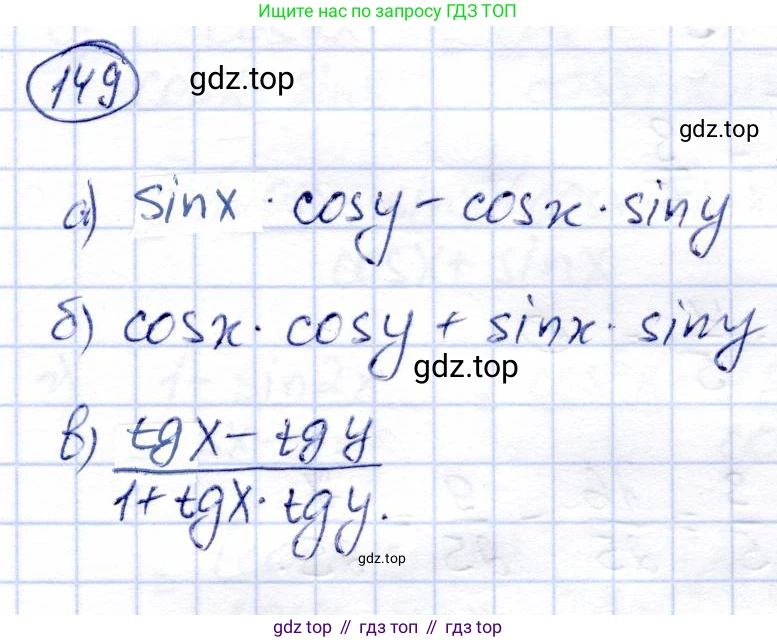 Ищите нас по запросу ГДЗ ТОП
149 gdz.top
gdz.top
а) sinx · cosy - cosx · siny
б) cosx · cosy + sinx · siny
gdz.top
в) tgx - tgy
1 + tgx · tgy.
gdz.top
gdz top // гдз топ // гдз top